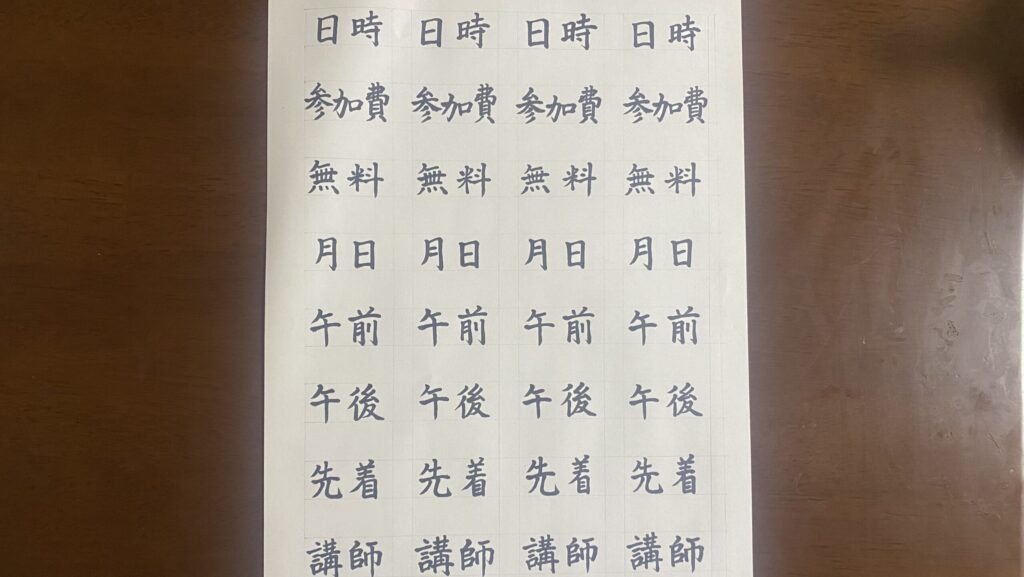 日時 日時 日時 日時
参加費 参加費 参加費 参加費
無料 無料 無料 無料
月日 月日 月日 月日
午前 午前 午前 午前
午後 午後 午後 午後
先着 先着 先着 先着
講師 講師 講師 講師